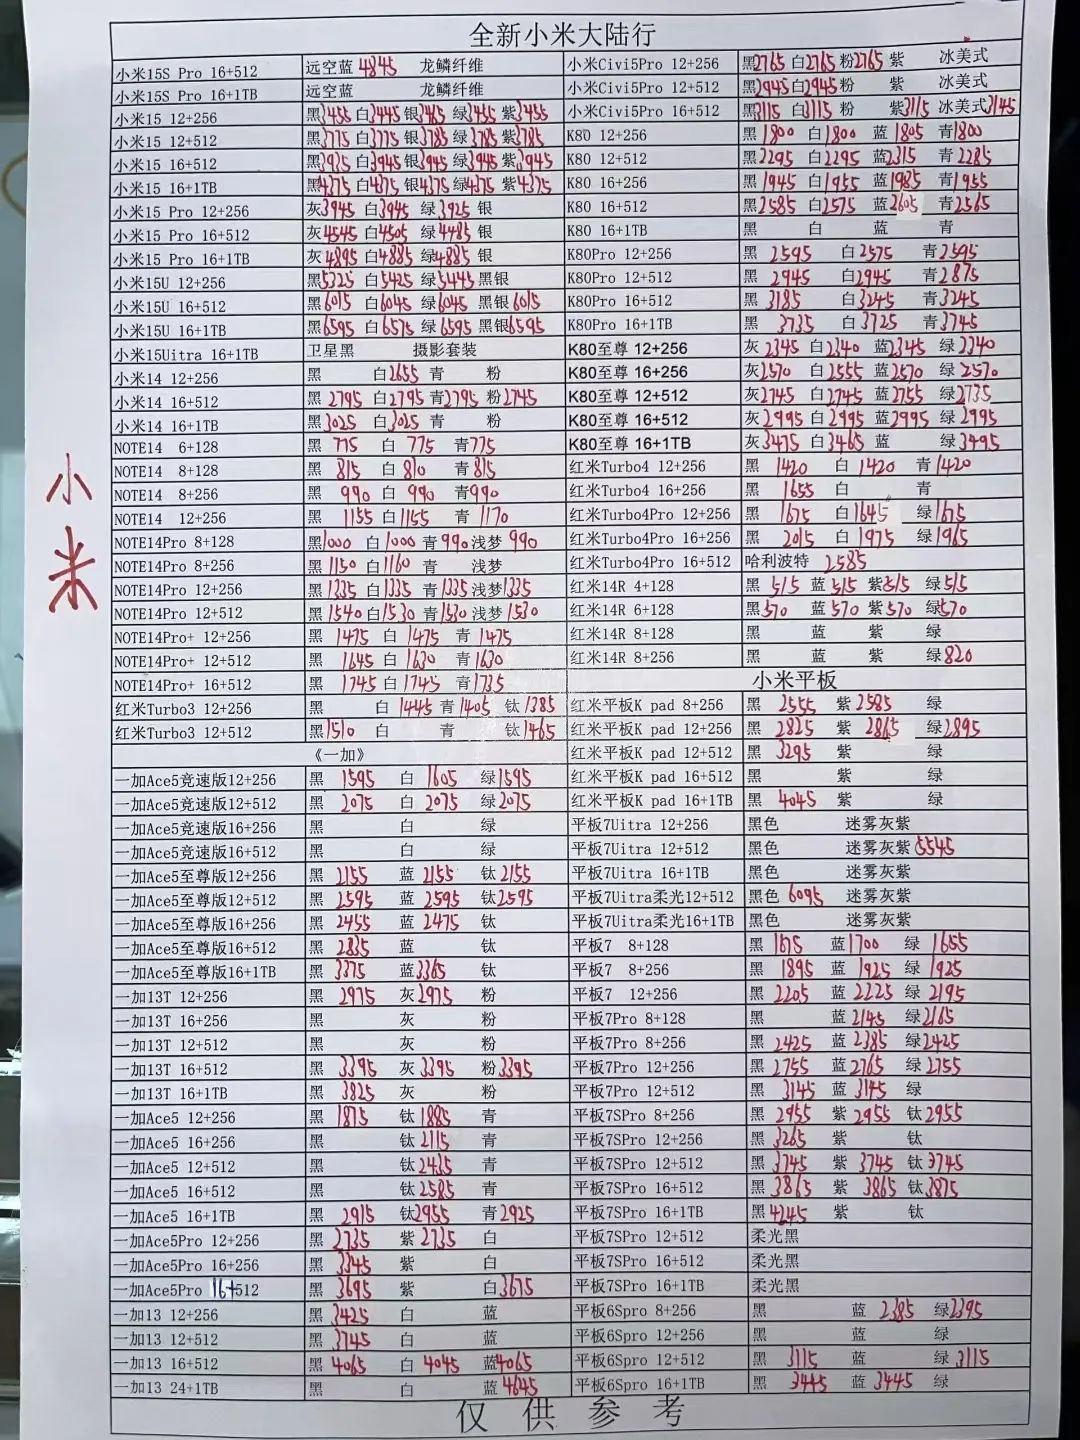 全新小米大陆行
小米15S Pro 16+512 远空蓝 4845 龙鳞纤维 小米Civi5Pro 12+256 黑2765 白2765 粉2765 紫 冰美式
小米15S Pro 16+1TB 远空蓝 龙鳞纤维 小米Civi5Pro 12+512 黑2945 白2945 粉 紫 冰美式
小米15 12+256 黑3455 白3445 银3485 绿3455 紫3455 小米Civi5Pro 16+512 黑3115 白3115 粉 紫3115 冰美式3145
小米15 12+512 黑3775 白3775 银3785 绿3785 紫3785 K80 12+256 黑1800 白1800 蓝1805 青1800
小米15 16+512 黑3935 白3945 银3945 绿3945 紫3945 K80 12+512 黑2295 白2295 蓝2315 青2285
小米15 16+1TB 黑4375 白4375 银4375 绿4375 紫4375 K80 16+256 黑1945 白1955 蓝1985 青1955
小米15 Pro 12+256 灰3945 白3945 绿3925 银 K80 16+512 黑2585 白2575 蓝2605 青2565
小米15 Pro 16+512 灰4545 白4505 绿4485 银 K80 16+1TB 黑 白 蓝 青
小米15 Pro 16+1TB 灰4895 白4885 绿4885 银 K80Pro 12+256 黑 2595 白2575 青2595
小米15U 12+256 黑5325 白5425 绿5445 黑银 K80Pro 12+512 黑 2945 白2945 青2875
小米15U 16+512 黑6015 白6045 绿6045 黑银6015 K80Pro 16+512 黑 3185 白3245 青3245
小米15U 16+1TB 黑6595 白6575 绿6595 黑银6595 K80Pro 16+1TB 黑 3735 白3725 青3745
小米15Uitra 16+1TB 卫星黑 摄影套装 K80至尊 12+256 灰2345 白2340 蓝2345 绿2340
小米14 12+256 黑 白2655 青 粉 K80至尊 16+256 灰2570 白2555 蓝2570 绿2570
小米14 16+512 黑2795 白2795 青2795 粉2745 K80至尊 12+512 灰2745 白2745 蓝2755 绿2735
小米14 16+1TB 黑3025 白3025 青 粉 K80至尊 16+512 灰2995 白2995 蓝2995 绿2995
NOTE14 6+128 黑 775 白 775 青775 K80至尊 16+1TB 灰3475 白3465 蓝 绿3495
NOTE14 8+128 黑 815 白 810 青815 红米Turbo4 12+256 黑 1420 白1420 青1420
NOTE14 8+256 黑 990 白 990 青990 红米Turbo4 16+256 黑 1655 白 青
NOTE14 12+256 黑 1155 白1155 青1170 红米Turbo4Pro 12+256 黑 1675 白1645 绿1675
NOTE14Pro 8+128 黑1000 白1000 青990 浅梦 990 红米Turbo4Pro 16+256 黑 2015 白1975 绿1965
NOTE14Pro 8+256 黑1150 白1160 青 浅梦 红米Turbo4Pro 16+512 哈利波特 2585
NOTE14Pro 12+256 黑1335 白1335 青1335 浅梦1335 红米14R 4+128 黑 515 蓝515 紫515 绿515
NOTE14Pro 12+512 黑1540 白1530 青1530 浅梦1530 红米14R 6+128 黑570 蓝570 紫570 绿570
NOTE14Pro+ 12+256 黑 1475 白 1475 青 1475 红米14R 8+128 黑 蓝 紫 绿
NOTE14Pro+ 12+512 黑 1645 白 1630 青1630 红米14R 8+256 黑 蓝 紫 绿820
NOTE14Pro+ 16+512 黑 1745 白1745 青1735 小米平板
红米Turbo3 12+256 黑 白1445 青1405 钛1385 红米平板K pad 8+256 黑 2555 紫2585 绿
红米Turbo3 12+512 黑1510 白 青 钛1465 红米平板K pad 12+256 黑 2825 紫 2865 绿2895
《一加》 红米平板K pad 12+512 黑 3295 紫 绿
一加Ace5竞速版12+256 黑 1595 白 1605 绿1595 红米平板K pad 16+512 黑 紫 绿
一加Ace5竞速版12+512 黑 2075 白 2075 绿2075 红米平板K pad 16+1TB 黑 4045 紫 绿
一加Ace5竞速版16+256 黑 白 绿 平板7Uitra 12+256 黑色 迷雾灰紫
一加Ace5竞速版16+512 黑 白 绿 平板7Uitra 12+512 黑色 迷雾灰紫5545
一加Ace5至尊版12+256 黑 2155 蓝 2155 钛2155 平板7Uitra 16+1TB 黑色 迷雾灰紫
一加Ace5至尊版12+512 黑 2595 蓝 2595 钛2595 平板7Uitra柔光12+512 黑色 6095 迷雾灰紫
一加Ace5至尊版16+256 黑 2455 蓝 2475 钛 平板7Uitra柔光16+1TB 黑色 迷雾灰紫
一加Ace5至尊版16+512 黑 2835 蓝 钛 平板7 8+128 黑 1675 蓝1700 绿 1655
一加Ace5至尊版16+1TB 黑 3375 蓝3365 钛 平板7 8+256 黑 1895 蓝 1925 绿 1925
一加13T 12+256 黑 2975 灰2975 粉 平板7 12+256 黑 2205 蓝 2225 绿 2195
一加13T 16+256 黑 灰 粉 平板7Pro 8+128 黑 蓝2145 绿2165
一加13T 12+512 黑 灰 粉 平板7Pro 8+256 黑 2425 蓝 2385 绿2425
一加13T 16+512 黑 3395 灰 3395 粉3395 平板7Pro 12+256 黑 2755 蓝 2765 绿2755
一加13T 16+1TB 黑 3825 灰 粉 平板7Pro 12+512 黑 3145 蓝 3145 绿
一加Ace5 12+256 黑 1875 钛1885 青 平板7SPro 8+256 黑 2955 紫 2955 钛2955
一加Ace5 16+256 黑 钛2115 青 平板7SPro 12+256 黑 3265 紫 钛
一加Ace5 12+512 黑 钛2435 青 平板7SPro 12+512 黑 3745 紫 3745 钛3745
一加Ace5 16+512 黑 钛2585 青 平板7SPro 16+512 黑 3865 紫 3865 钛3875
一加Ace5 16+1TB 黑 2915 钛2955 青2925 平板7SPro 16+1TB 黑4245 紫 钛
一加Ace5Pro 12+256 黑 2735 紫 2735 白 平板7SPro 12+512 柔光黑
一加Ace5Pro 16+256 黑 3345 紫 白 平板7SPro 16+512 柔光黑
一加Ace5Pro 16+512 黑 3695 紫 白3675 平板7SPro 16+1TB 柔光黑
一加13 12+256 黑 3425 白 蓝 平板6Spro 8+256 黑 蓝 2385 绿2395
一加13 12+512 黑 3745 白 蓝 平板6Spro 12+256 黑 蓝 绿
一加13 16+512 黑 4065 白 4045 蓝4065 平板6Spro 12+512 黑 3115 蓝 绿3115
一加13 24+1TB 黑 白 蓝4645 平板6Spro 16+1TB 黑 3445 蓝 3445 绿
仅供参考
小米